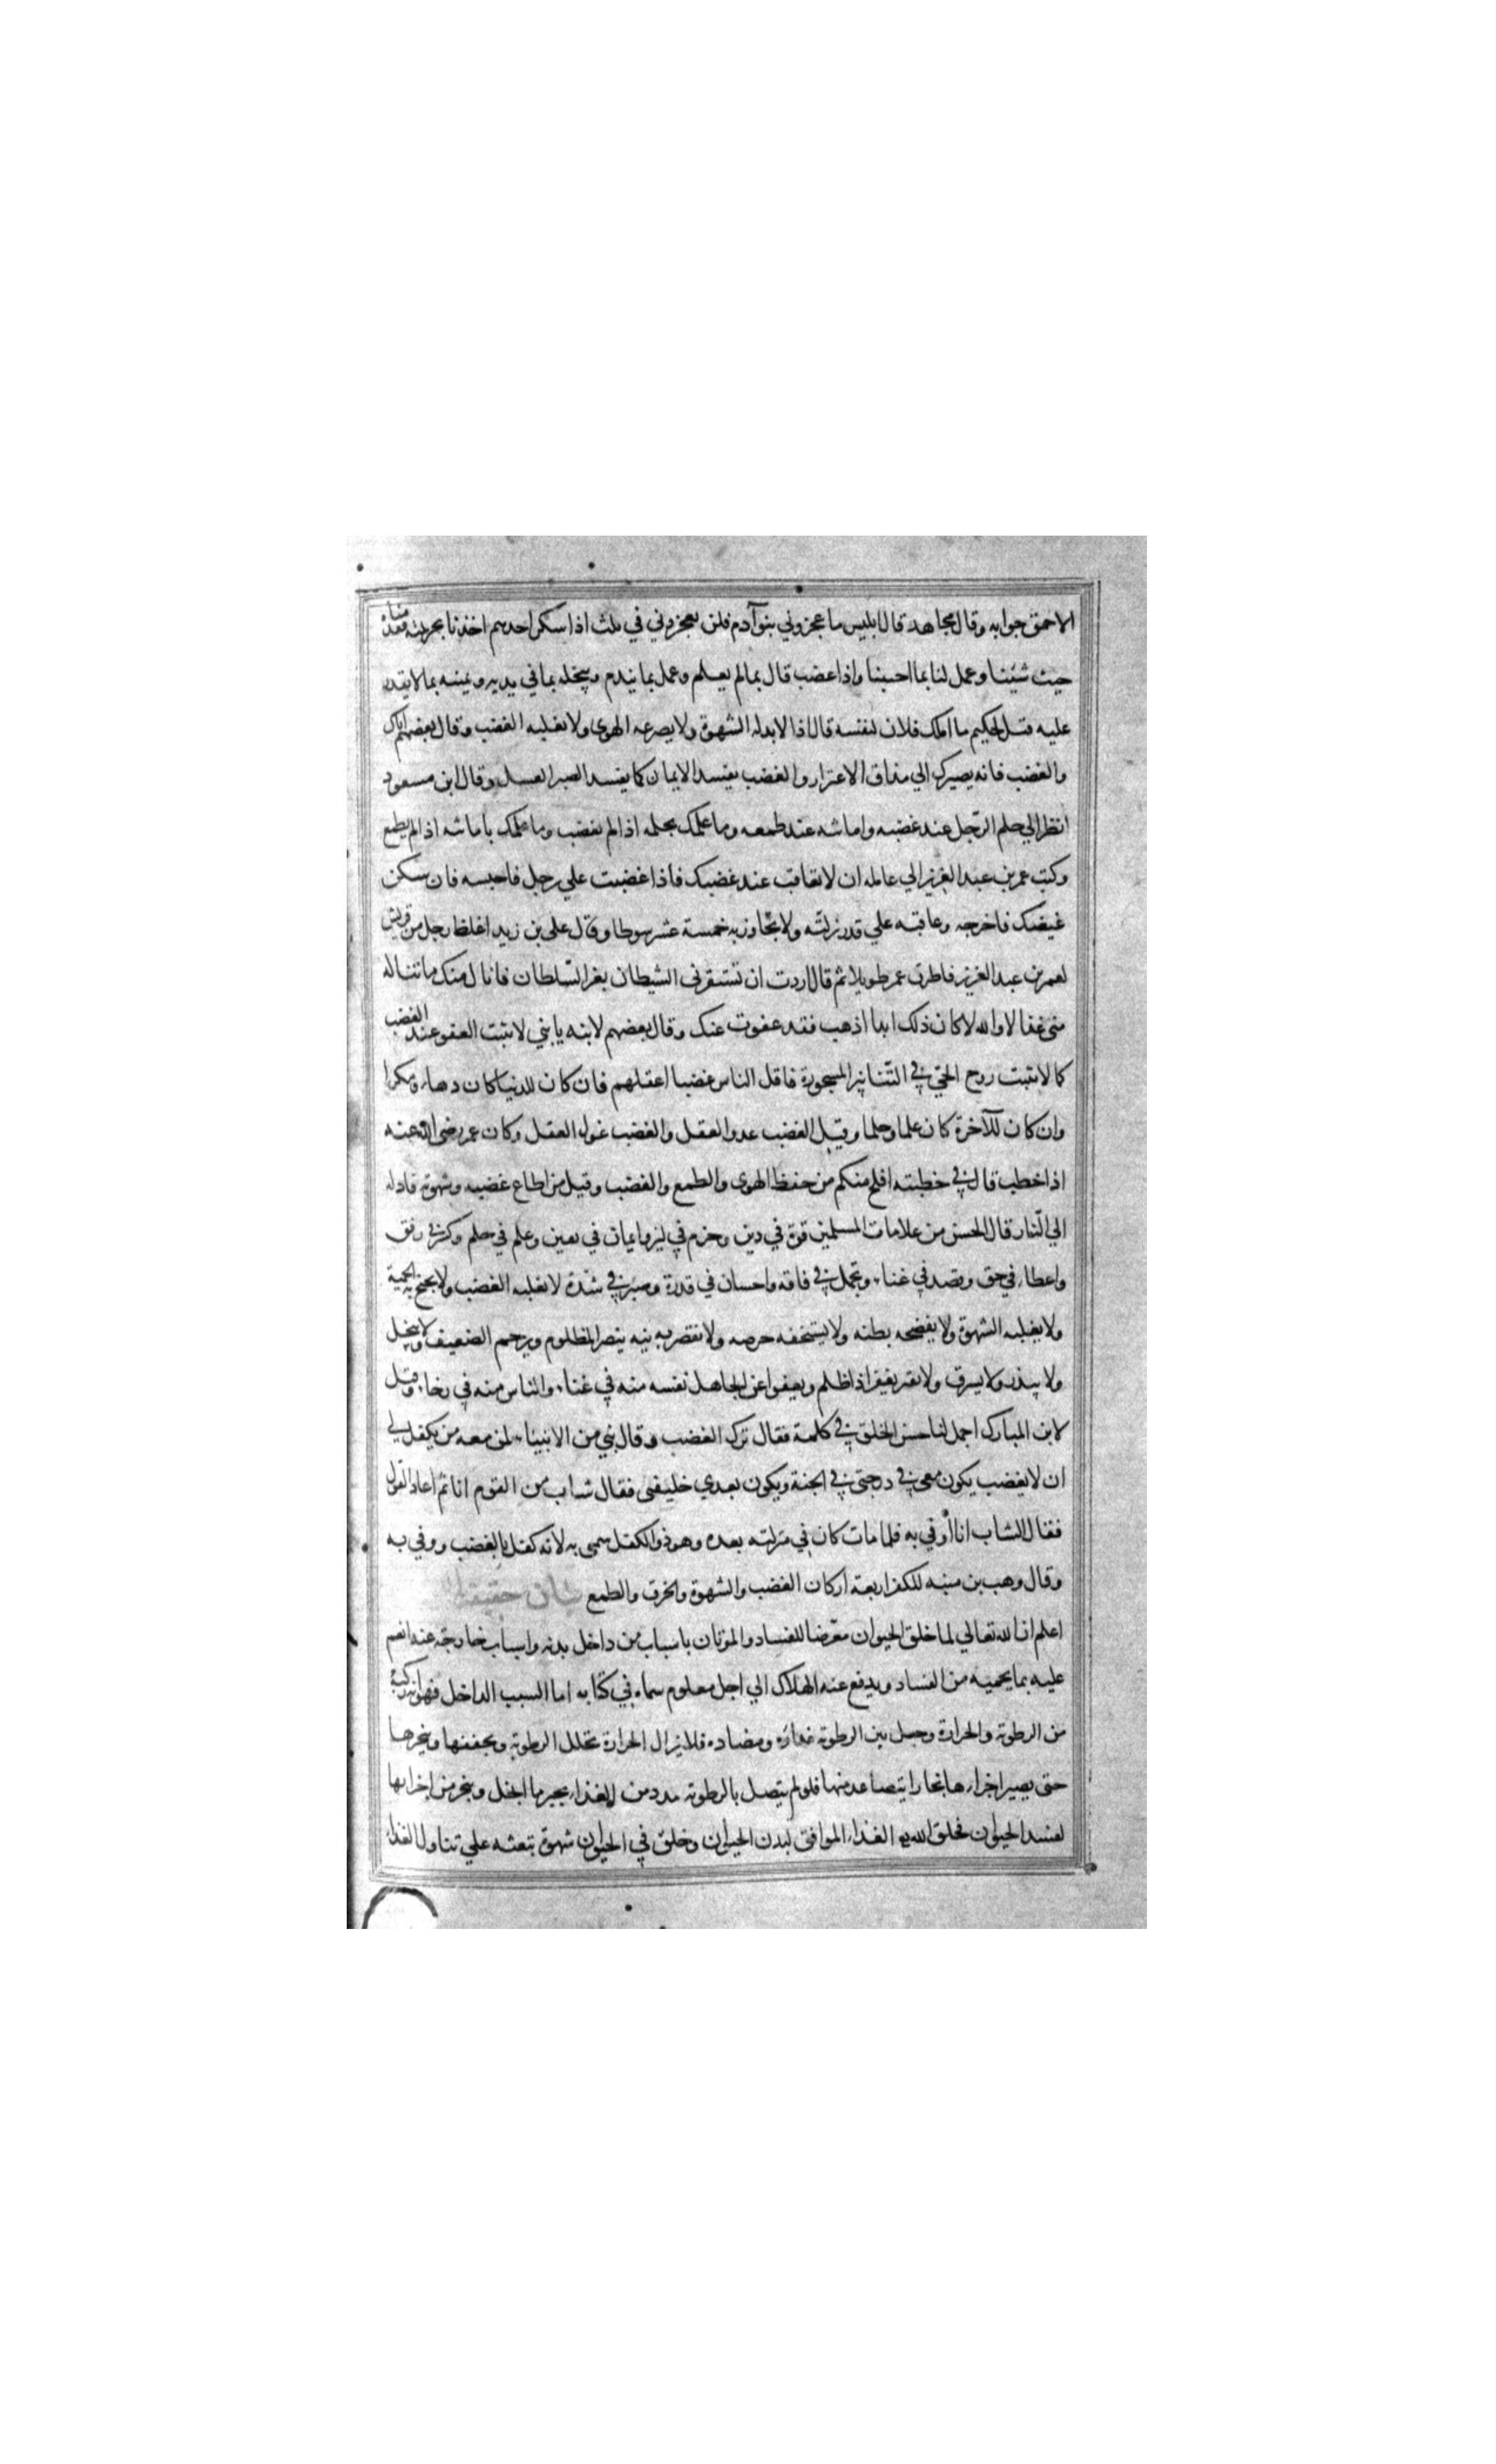 الاحمق جوابه وقال مجاهد قال ابليس ما عجزوني بنو آدم فلن يعجزوني في ثلث اذا سكر احدهم اخذنا بخزمته فقدناه
حيث شئنا وعمل لنا بما احببنا واذا غضب قال بما لم يعلم وعمل بما يندم ونبخله بما في يديه ونمنيه بما لا يقدر
عليه وقيل لحكيم ما املك فلان لنفسه قال اذا لا يذله الشهوة ولا يصرعه الهوى ولا يغلبه الغضب وقال بعضهم اياك
والغضب فانه يصيرك الي مذاق الاعتزار والغضب يفسد الايمان كما يفسد الصبر العسل وقال ابن مسعود
انظر الي حلم الرّجل عند غضبه وامانته عند طمعه وما علمك بحلمه اذا لم يغضب وما علمك بامانته اذا لم يطمع
وكتب عمر بن عبد العزيز الي عامله ان لا تعاقب عند غضبك فاذا غضبت علي رجل فاحبسه فان سكن
غيضك فاخرجه وعاقبه علي قدر زلته ولا تجاوز به خمسة عشر سوطا وقال علي بن زيد اغلظ رجل من قريش
لعمر بن عبد العزيز فاطرق عمر طويلا ثم قال اردت ان تستفزني الشيطان بعز السّلطان فانال منك ما تناله
مني غدا لا والله لا كان ذلك ابدا اذهب فقد عفوت عنك وقال بعضهم لابنه يا بني لا تثبت العقو عند الغضب
كما لا تثبت روح الحيّ في التّنانير المسجورة فاقل الناس غضبا اعقلهم فان كان للدنيا كان دهاء ومكرا
وان كان للآخرة كان علما وحلما وقيل الغضب عدو العقل والغضب غول العقل وكان عمر رضي الله عنه
اذا خطب قال في خطبته افلح منكم من حفظ الهوى والطمع والغضب وقيل من اطاع غضبه وشهوته قاداه
الي النّار قال الحسن من علامات المسلمين قوة في دين وحزم في لين وايمان في يقين وعلم في حلم وكيس في رفق
واعطاء في حق وقصد في غناء وتجمل في فاقه واحسان في قدرة وصبر في شدة لا يغلبه الغضب ولا يجمح به الحمية
ولا يغلبه الشهوة ولا يفضحه بطنه ولا يستخفه حرصه ولا تقصر به نيه ينصر المظلوم ويرحم الضعيف ولا يبخل
ولا يبذر ولا يسرف ولا يقتر يغفر اذا ظلم ويعفوا عن الجاهل نفسه منه في عناء والناس منه في رخاء وقيل
لابن المبارك اجمل لنا حسن الخلق في كلمة فقال ترك الغضب وقال نبي من الانبياء لمن معه من يكفل لي
ان لا يغضب يكون معي في درجتي في الجنة ويكون بعدي خليفتي فقال شاب من القوم انا ثم اعاد القول
فقال الشاب انا أوفي به فلما مات كان في منزلته بعده وهو ذوالكفل سمي به لانه كفل بالغضب ووفي به
وقال وهب بن منبه للكفر اربعة اركان الغضب والشهوة والخرق والطمع بيان حقيقة
اعلم ان الله تعالي لما خلق الحيوان معرّضا للفساد والموتان باسباب من داخل بدنه واسباب خارجة عنه انعم
عليه بما يحميه من الفساد ويدفع عنه الهلاك الي اجل معلوم سماه في كتابه اما السبب الداخل فهو انه ركبه
من الرطوبة والحرارة وجعل بين الرطوبة عداوة ومضاده فلا يزال الحرارة تحلل الرطوبة وتجففها وتبخرها
حتى يصير اجزاءها بخارا يتصاعد منها فلو لم يتصل بالرطوبة مدد من الغذاء يجبر ما انحل وتبخر من اجزائها
لفسد الحيوان فخلق الله الغذاء الموافق لبدن الحيوان وخلق في الحيوان شهوة تبعثه علي تناول الغذاء